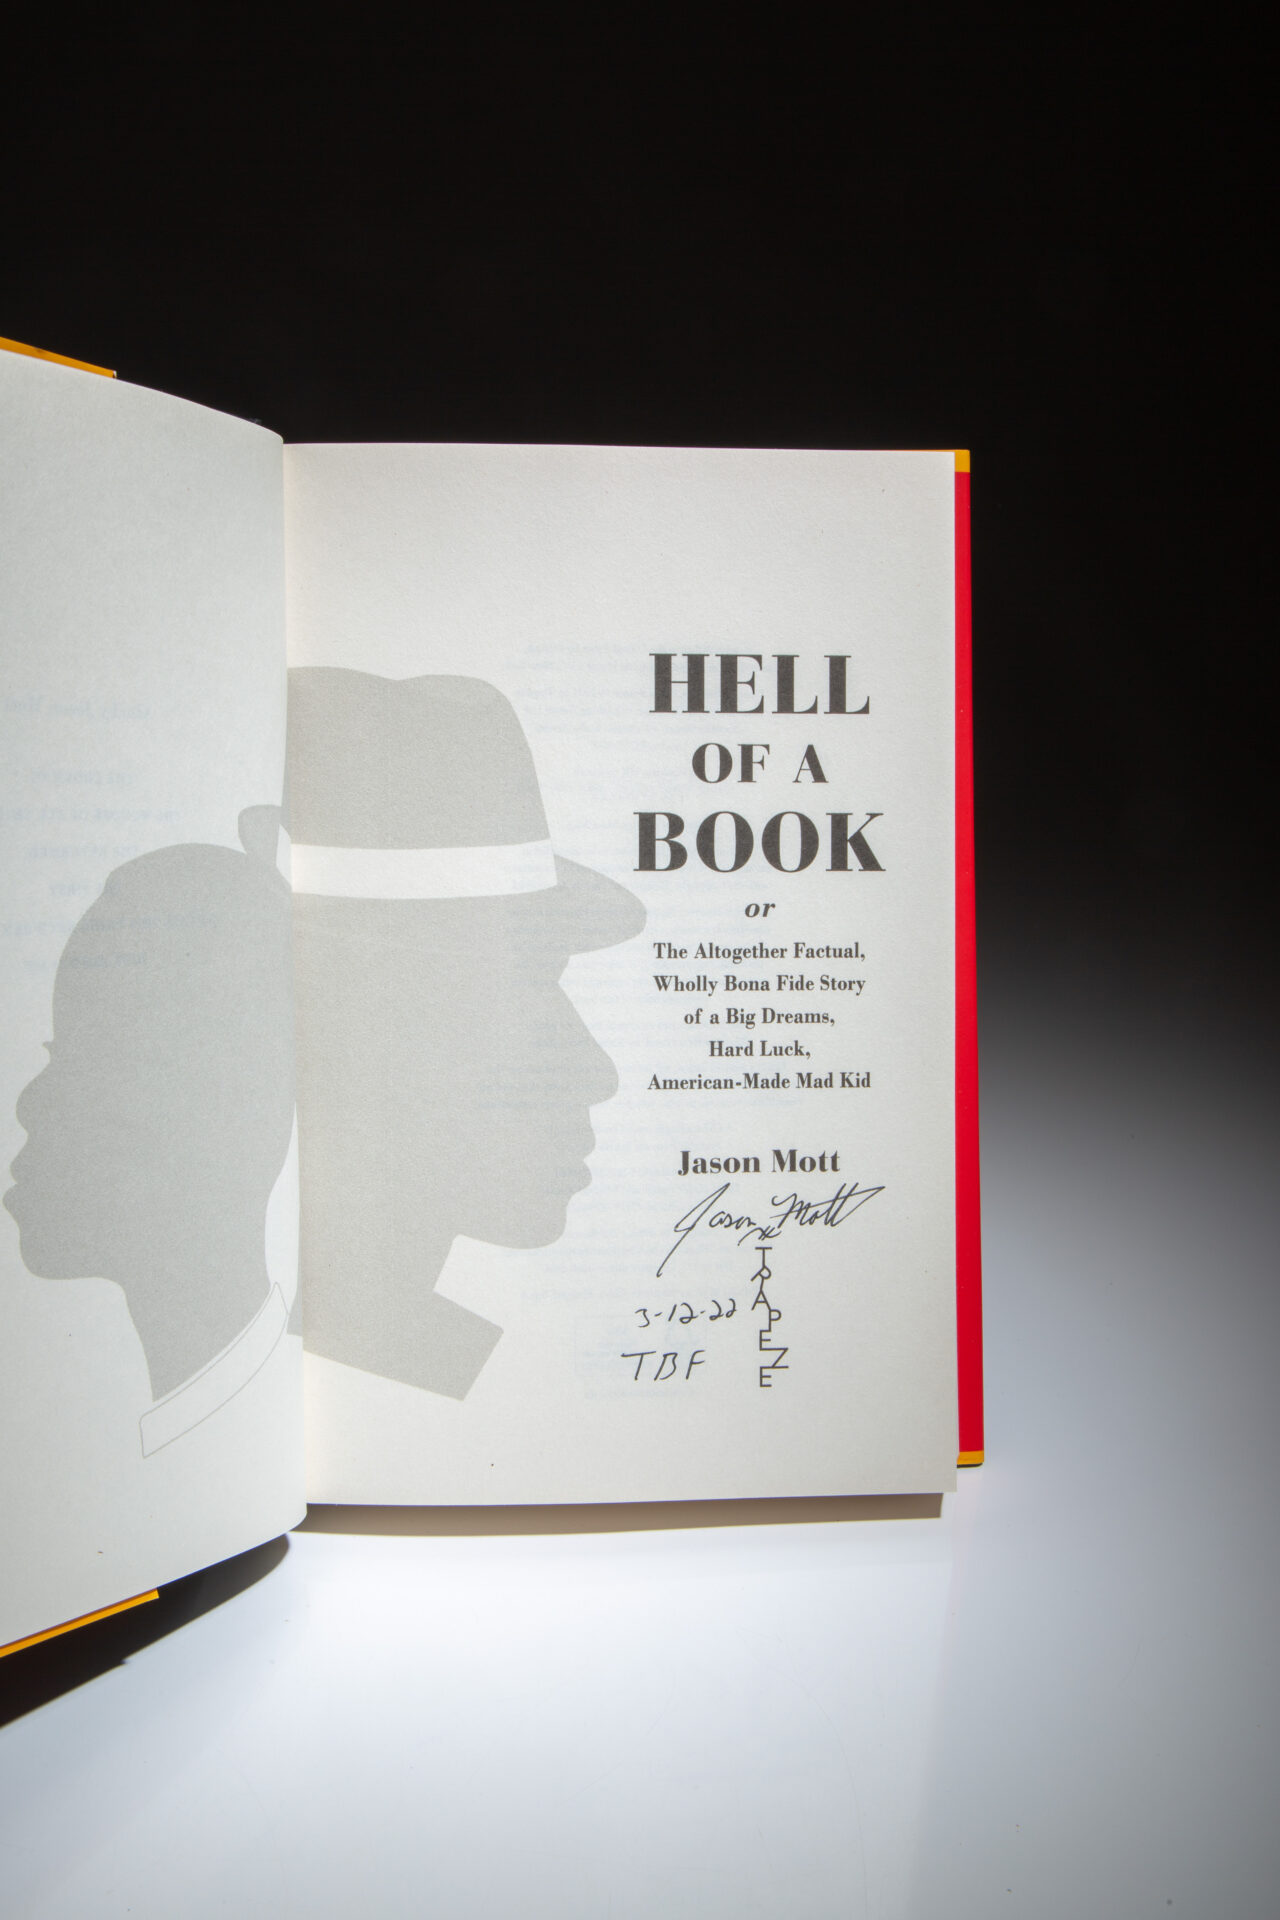 HELL
OF A
BOOK
or
The Altogether Factual,
Wholly Bona Fide Story
of a Big Dreams,
Hard Luck,
American-Made Mad Kid
Jason Mott
Jason Mott
3-12-22
TBF
TRAPEZE